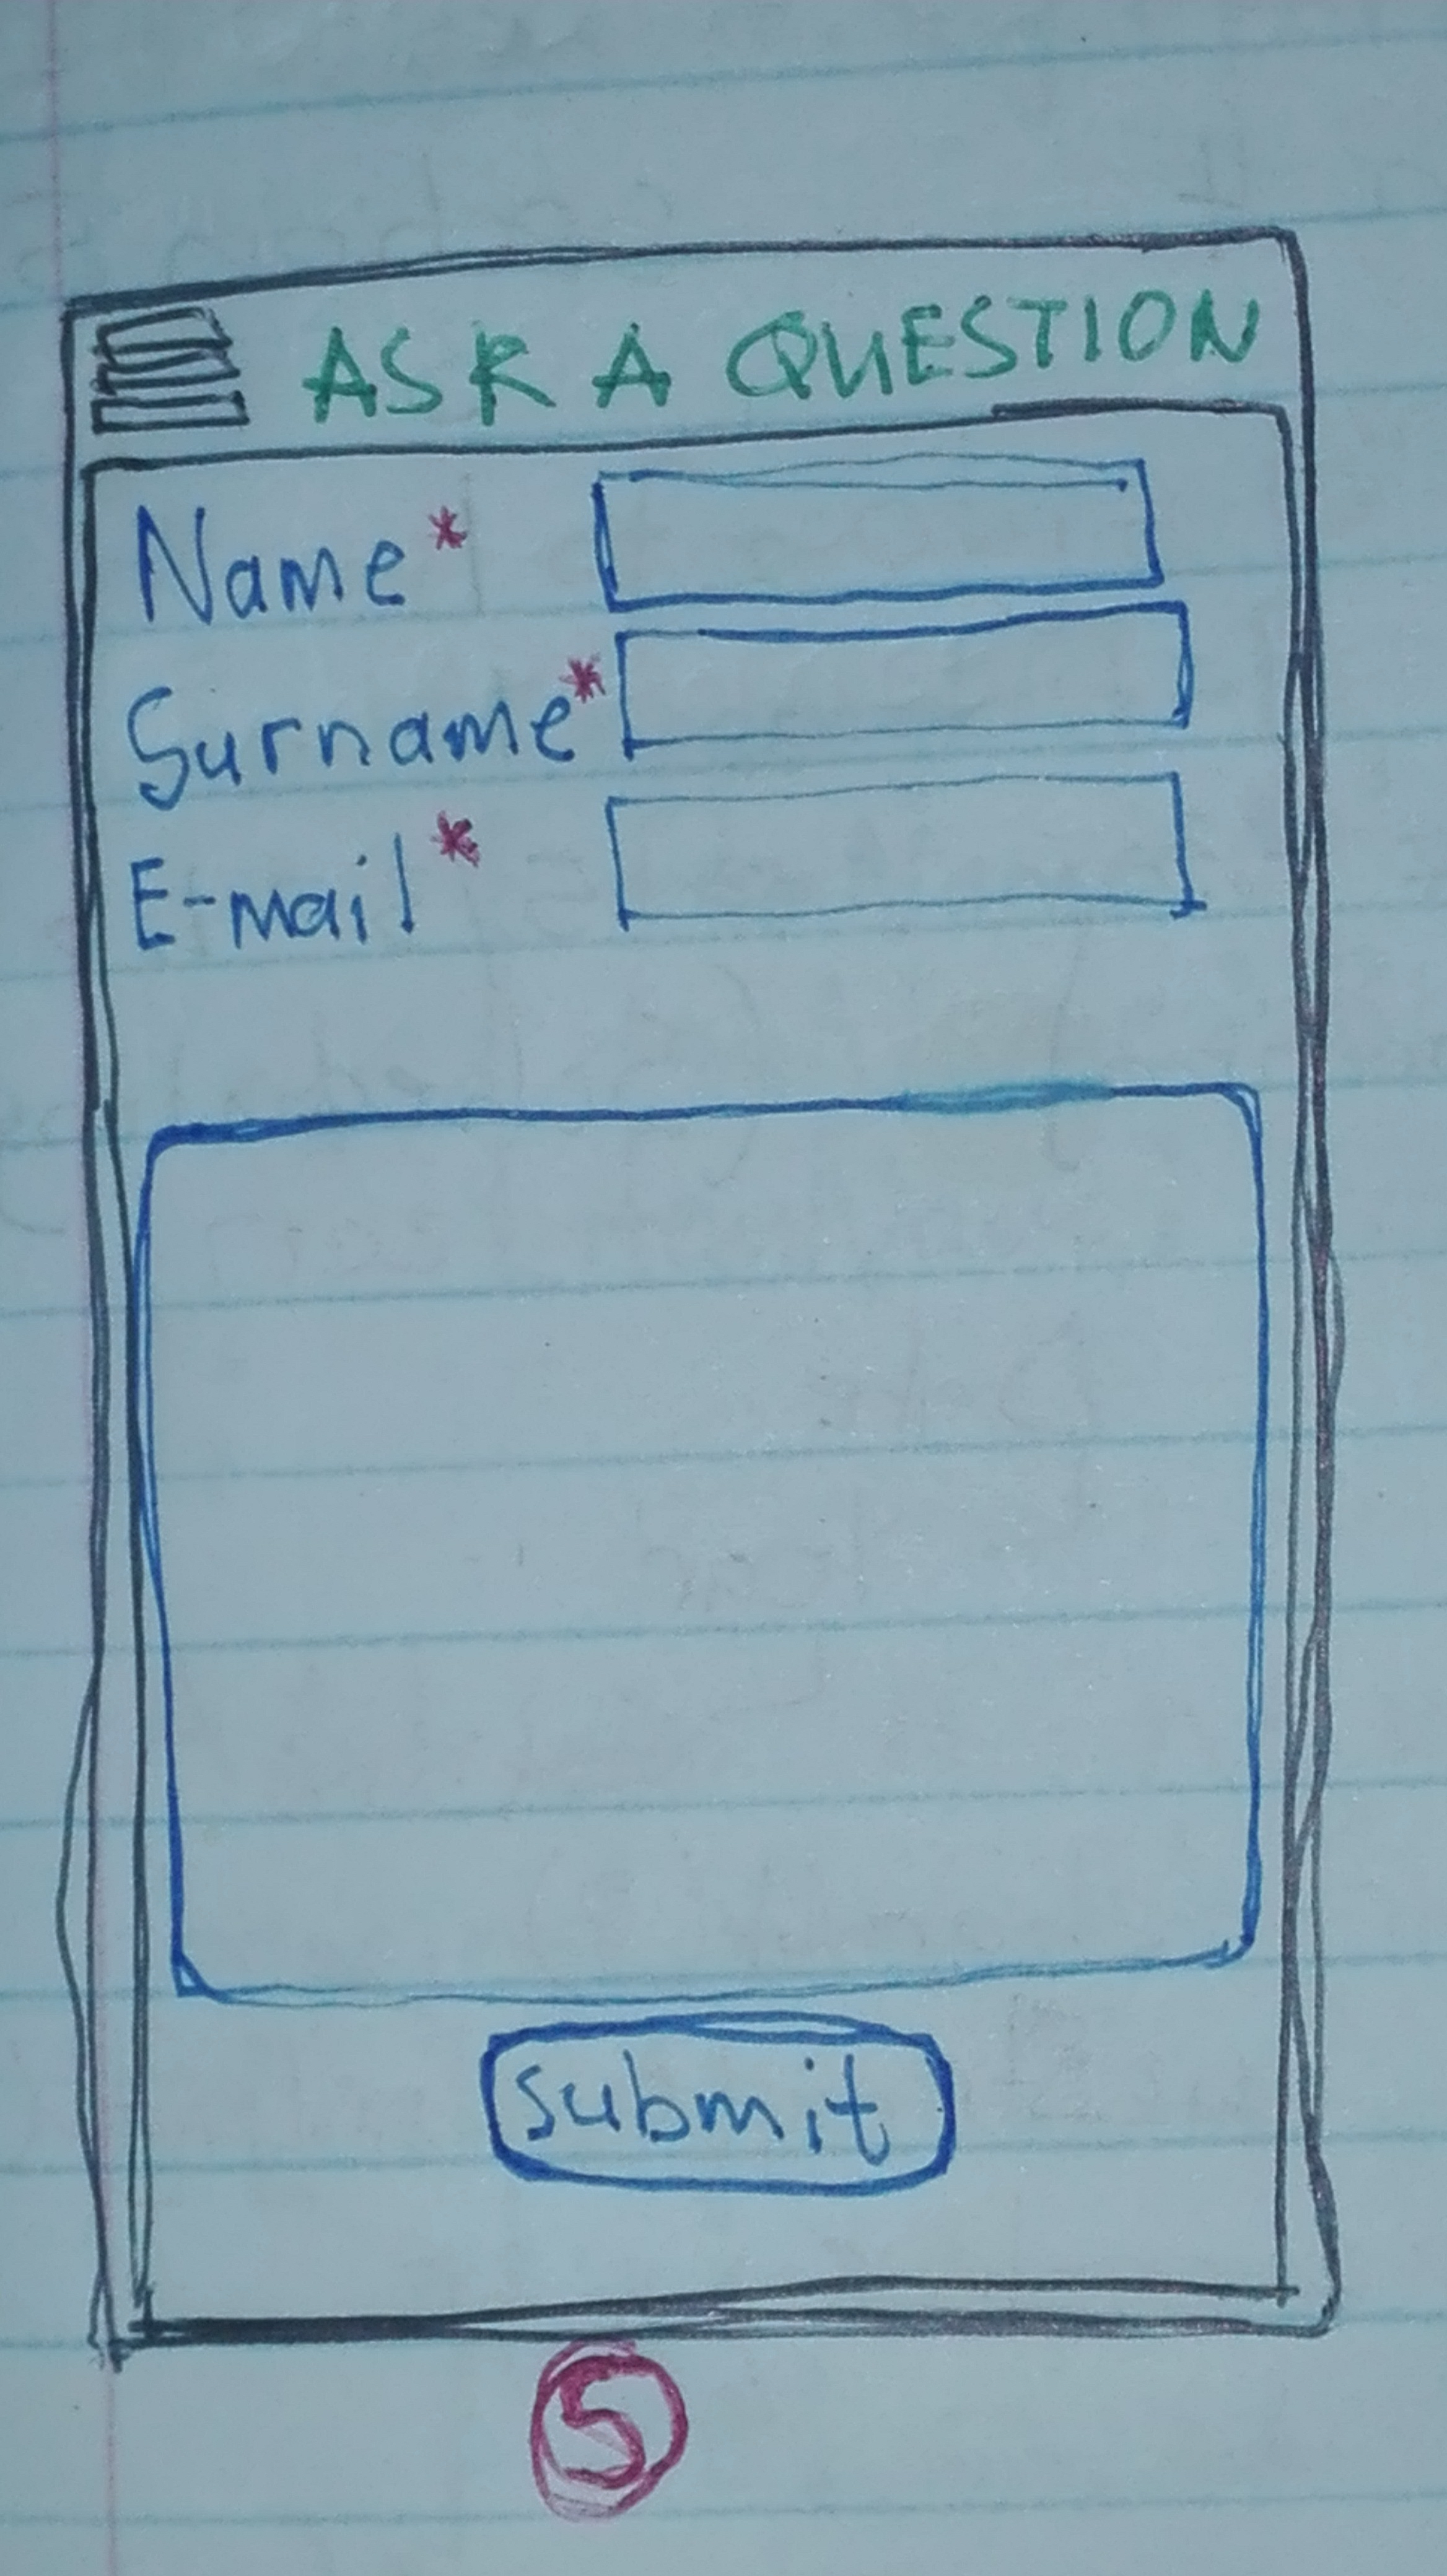 ASK A QUESTION
Name*
Surname*
E-mail*
submit
5